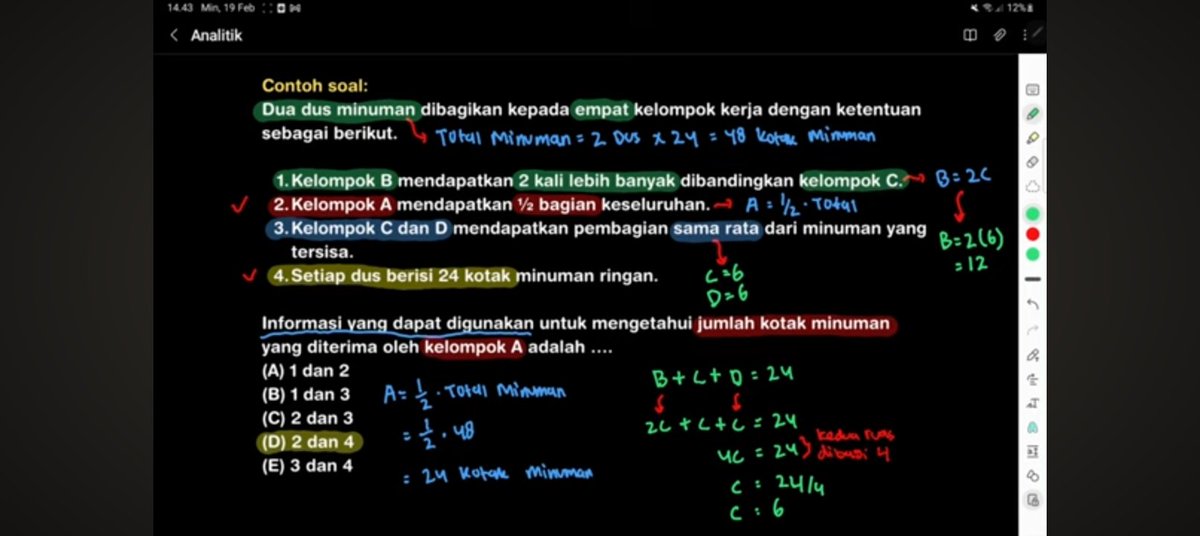 14.43 Min, 19 Feb
12%
< Analitik
Contoh soal:
Dua dus minuman dibagikan kepada empat kelompok kerja dengan ketentuan
sebagai berikut.
Total Minuman = 2 Dus x 24 = 48 kotak Minuman
1. Kelompok B mendapatkan 2 kali lebih banyak dibandingkan kelompok C. → B = 2C
2. Kelompok A mendapatkan ½ bagian keseluruhan. → A = 1/2 . Total
3. Kelompok C dan D mendapatkan pembagian sama rata dari minuman yang
tersisa.
B = 2(6)
= 12
4. Setiap dus berisi 24 kotak minuman ringan.
C = 6
D = 6
Informasi yang dapat digunakan untuk mengetahui jumlah kotak minuman
yang diterima oleh kelompok A adalah ....
(A) 1 dan 2
(B) 1 dan 3
(C) 2 dan 3
(D) 2 dan 4
(E) 3 dan 4
A = 1/2 . Total Minuman
= 1/2 . 48
= 24 kotak Minuman
B + C + D = 24
2C + C + C = 24
4C = 24
kedua ruas
dibagi 4
C = 24/4
C = 6